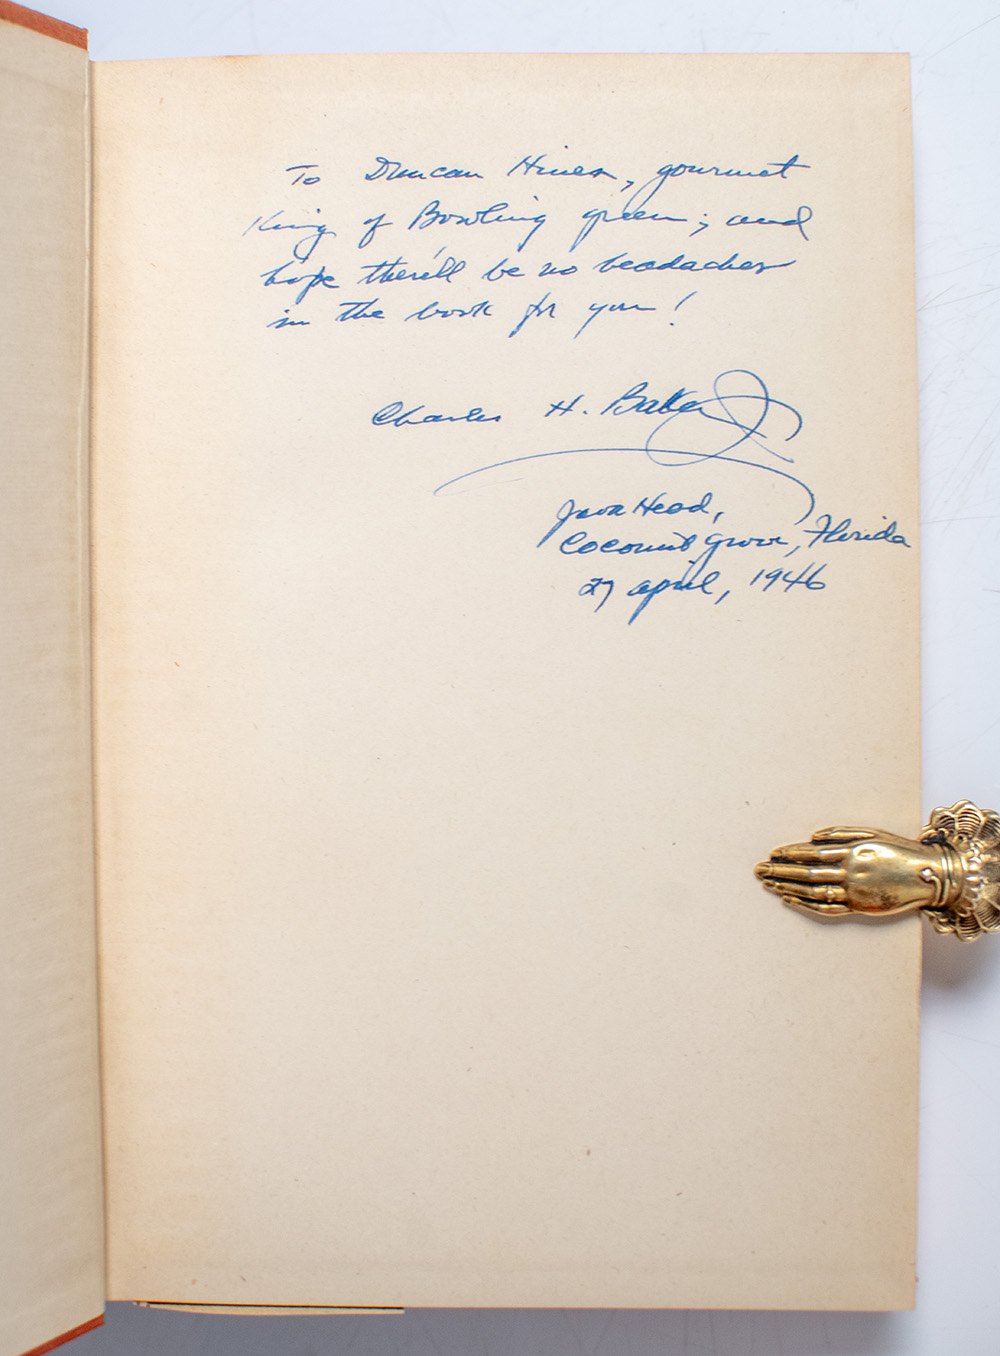 To Duncan Hines, gourmet
King of Bowling green; and
hope there'll be no headaches
in the book for you!
Charles H. Baker Jr
Java Head,
Coconut Grove, Florida
27 april, 1946